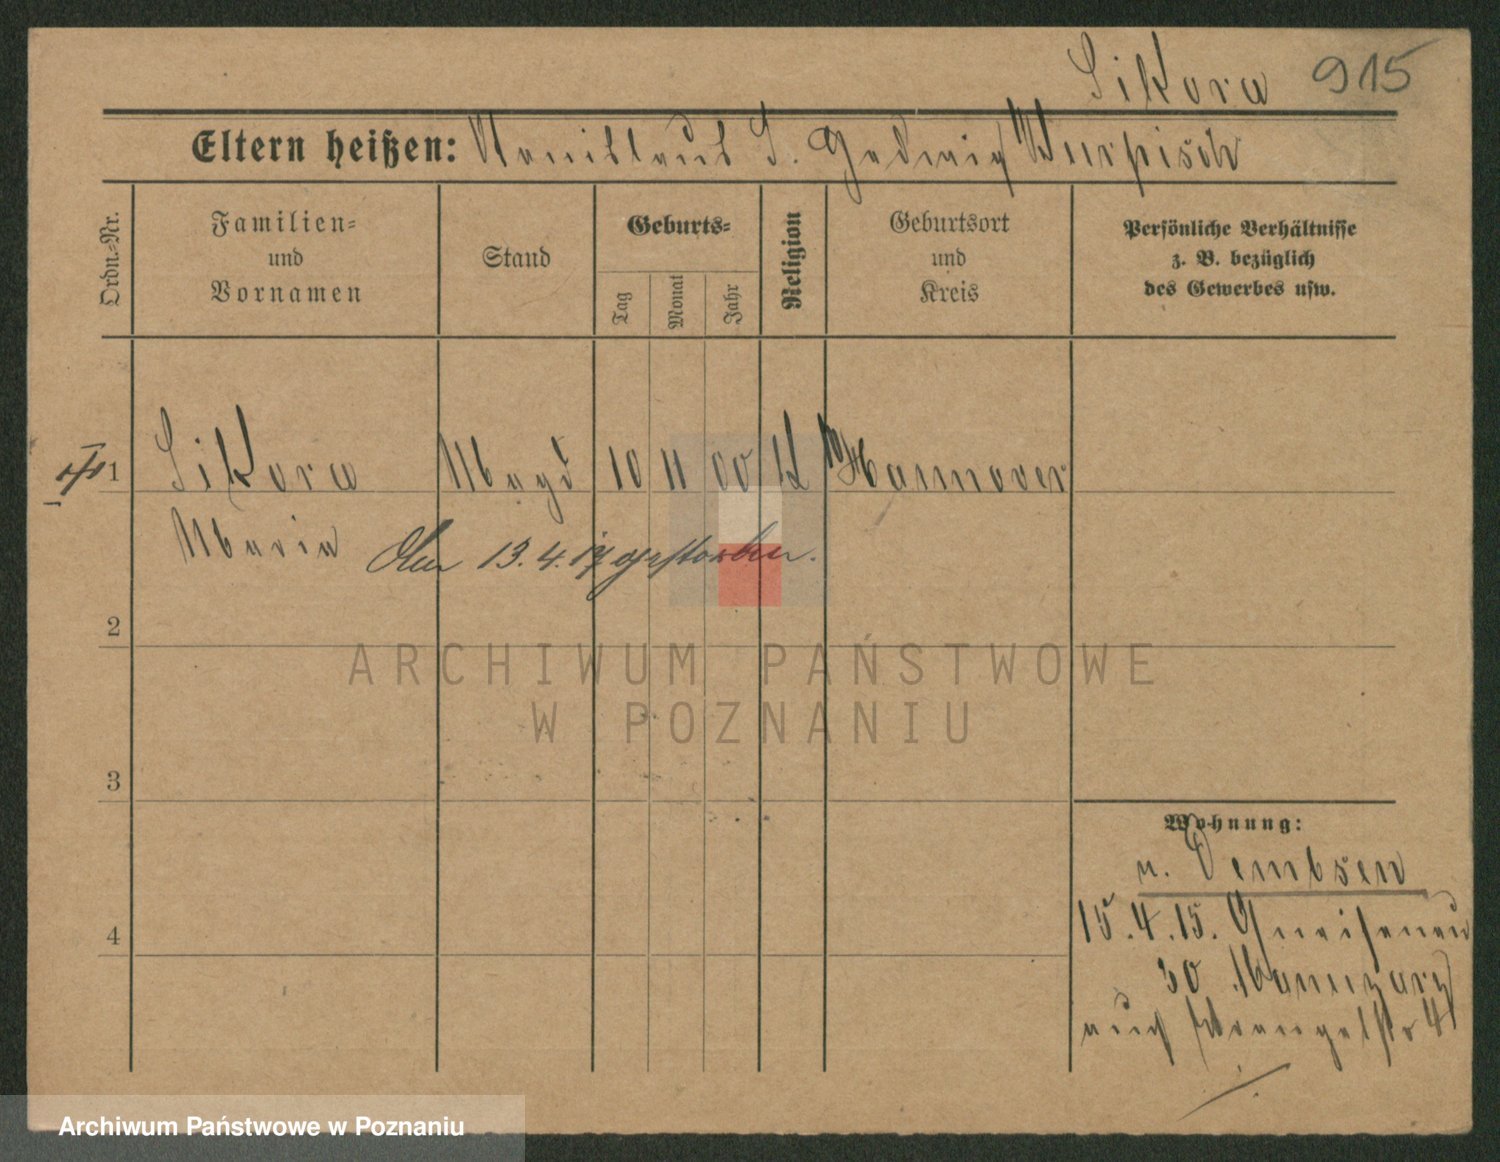 Sikora 915
Eltern heißen: Stanislaus S. Hedwig
Ordn.-Nr.
Familien-
und
Vornamen
Stand
Geburts-
Tag
Monat
Jahr
Religion
Geburtsort
und
Kreis
Persönliche Verhältnisse
z. B. bezüglich
des Gewerbes usw.
1
Sikora Magd 10 11 00 K Hannover
Maria Am 13.4.17 gestorben.
2
ARCHIWUM PAŃSTWOWE
W POZNANIU
3
Wohnung:
n. Dembsen
4
15.4.15. Gneisenau
30
auch Wrangelstr 4
Archiwum Państwowe w Poznaniu